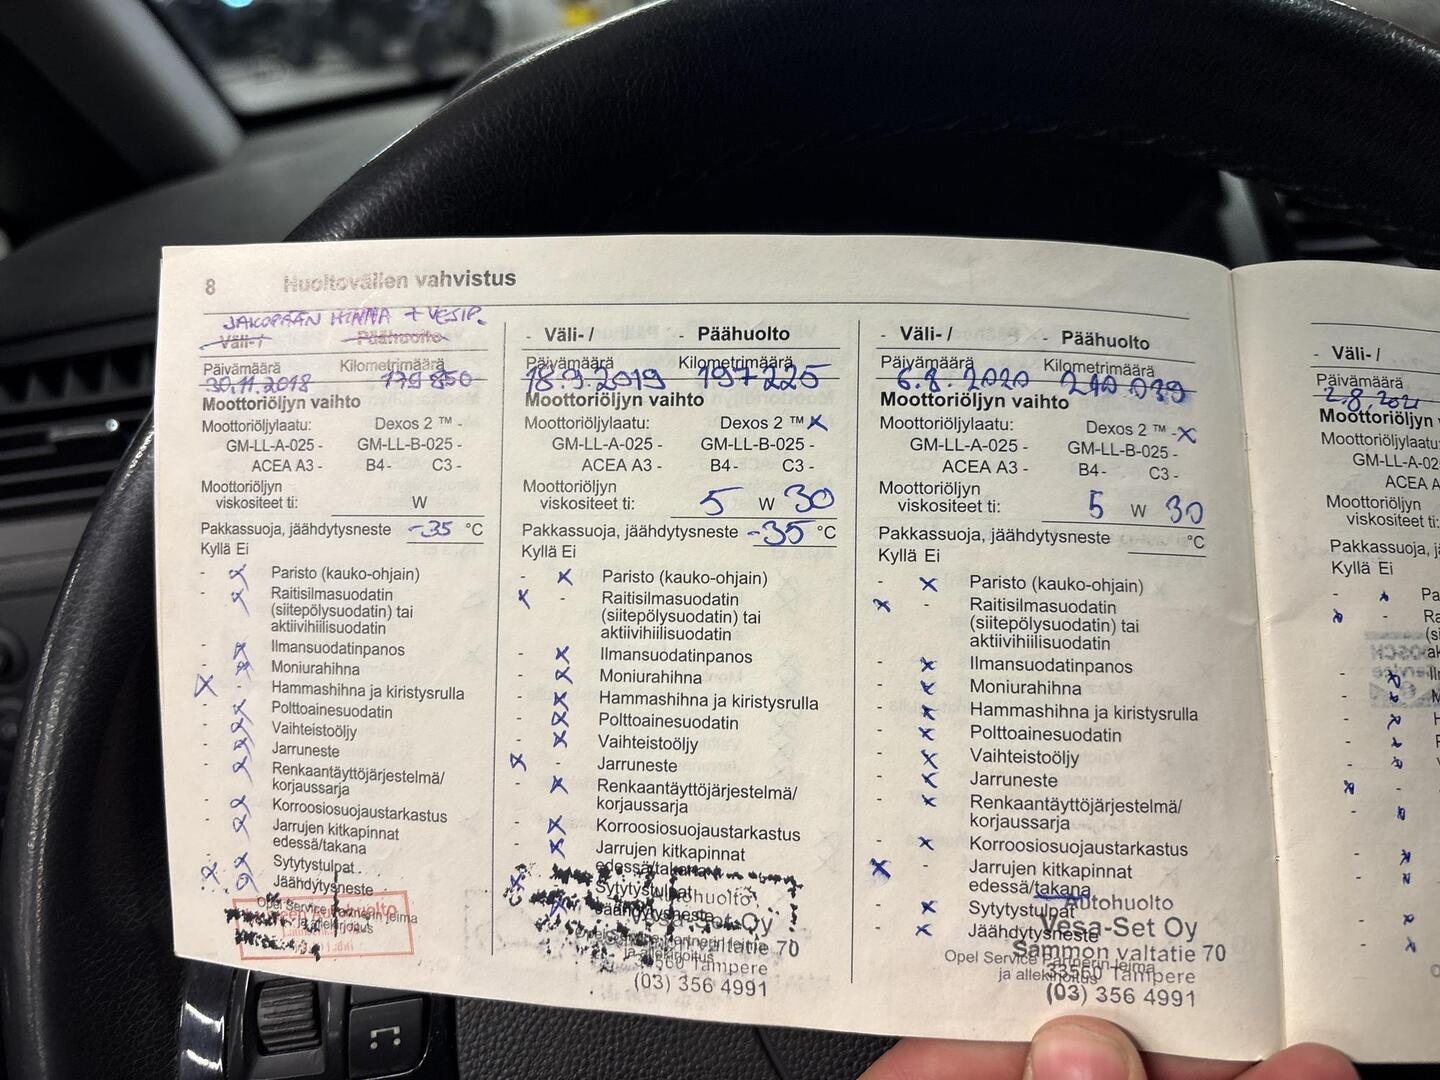 8 Huoltovälien vahvistus
JAKOPÄÄN HIHNA + VESIP.
Väli-/ Päähuolto
Päivämäärä Kilometrimäärä
30.11.2018 179 850
Moottoriöljyn vaihto
Moottoriöljylaatu: Dexos 2 ™ -
GM-LL-A-025 - GM-LL-B-025 -
ACEA A3 - B4 - C3 -
Moottoriöljyn
viskositeet ti: W
Pakkassuoja, jäähdytysneste -35 °C
Kyllä Ei
- x Paristo (kauko-ohjain)
- x Raitisilmasuodatin
(siitepölysuodatin) tai
aktiivihiilisuodatin
- x Ilmansuodatinpanos
- x Moniurahihna
x - Hammashihna ja kiristysrulla
- x Polttoainesuodatin
- x Vaihteistoöljy
- x Jarruneste
- x Renkaantäyttöjärjestelmä/
korjaussarja
- x Korroosiosuojaustarkastus
- x Jarrujen kitkapinnat
edessä/takana
- x Sytytystulpat
Jäähdytysneste
Opel Service Partnerin leima
ja allekirjoitus
- Väli- / - Päähuolto
Päivämäärä Kilometrimäärä
18.9.2019 197225
Moottoriöljyn vaihto
Moottoriöljylaatu: Dexos 2 ™ x
GM-LL-A-025 - GM-LL-B-025 -
ACEA A3 - B4 - C3 -
Moottoriöljyn
viskositeet ti: 5 W 30
Pakkassuoja, jäähdytysneste -35 °C
Kyllä Ei
- x Paristo (kauko-ohjain)
x - Raitisilmasuodatin
(siitepölysuodatin) tai
aktiivihiilisuodatin
- x Ilmansuodatinpanos
- x Moniurahihna
- x Hammashihna ja kiristysrulla
- x Polttoainesuodatin
- x Vaihteistoöljy
x - Jarruneste
- x Renkaantäyttöjärjestelmä/
korjaussarja
- x Korroosiosuojaustarkastus
- x Jarrujen kitkapinnat
edessä/takana
Sytytystulpat
Jäähdytysneste
Autohuolto
Vesa-Set Oy
valtatie 70
33560 Tampere
(03) 356 4991
- Väli- / - Päähuolto
Päivämäärä Kilometrimäärä
6.8.2020 210 039
Moottoriöljyn vaihto
Moottoriöljylaatu: Dexos 2 ™ -x
GM-LL-A-025 - GM-LL-B-025 -
ACEA A3 - B4 - C3 -
Moottoriöljyn
viskositeet ti: 5 W 30
Pakkassuoja, jäähdytysneste °C
Kyllä Ei
- x Paristo (kauko-ohjain)
x - Raitisilmasuodatin
(siitepölysuodatin) tai
aktiivihiilisuodatin
- x Ilmansuodatinpanos
- x Moniurahihna
- x Hammashihna ja kiristysrulla
- x Polttoainesuodatin
- x Vaihteistoöljy
- x Jarruneste
- x Renkaantäyttöjärjestelmä/
korjaussarja
- x Korroosiosuojaustarkastus
x - Jarrujen kitkapinnat
edessä/takana
- x Sytytystulpat
- x Jäähdytysneste
Opel Service Partnerin leima
ja allekirjoitus
Autohuolto
Vesa-Set Oy
Sammon valtatie 70
33560 Tampere
(03) 356 4991
- Väli- /
Päivämäärä
2.8.2021
Moottoriöljyn v
Moottoriöljylaatu:
GM-LL-A-02
ACEA A
Moottoriöljyn
viskositeet ti:
Pakkassuoja, jä
Kyllä Ei